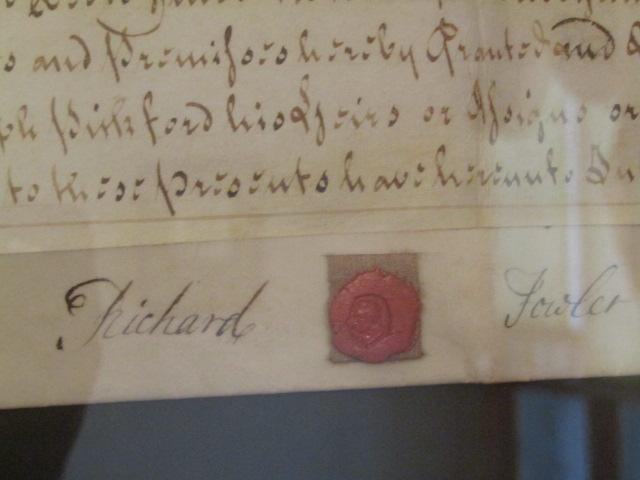 s and Premisses hereby Granted and
ph Pickford his Heirs or Assigns or
to these Presents have hereunto Su
Richard Fowler